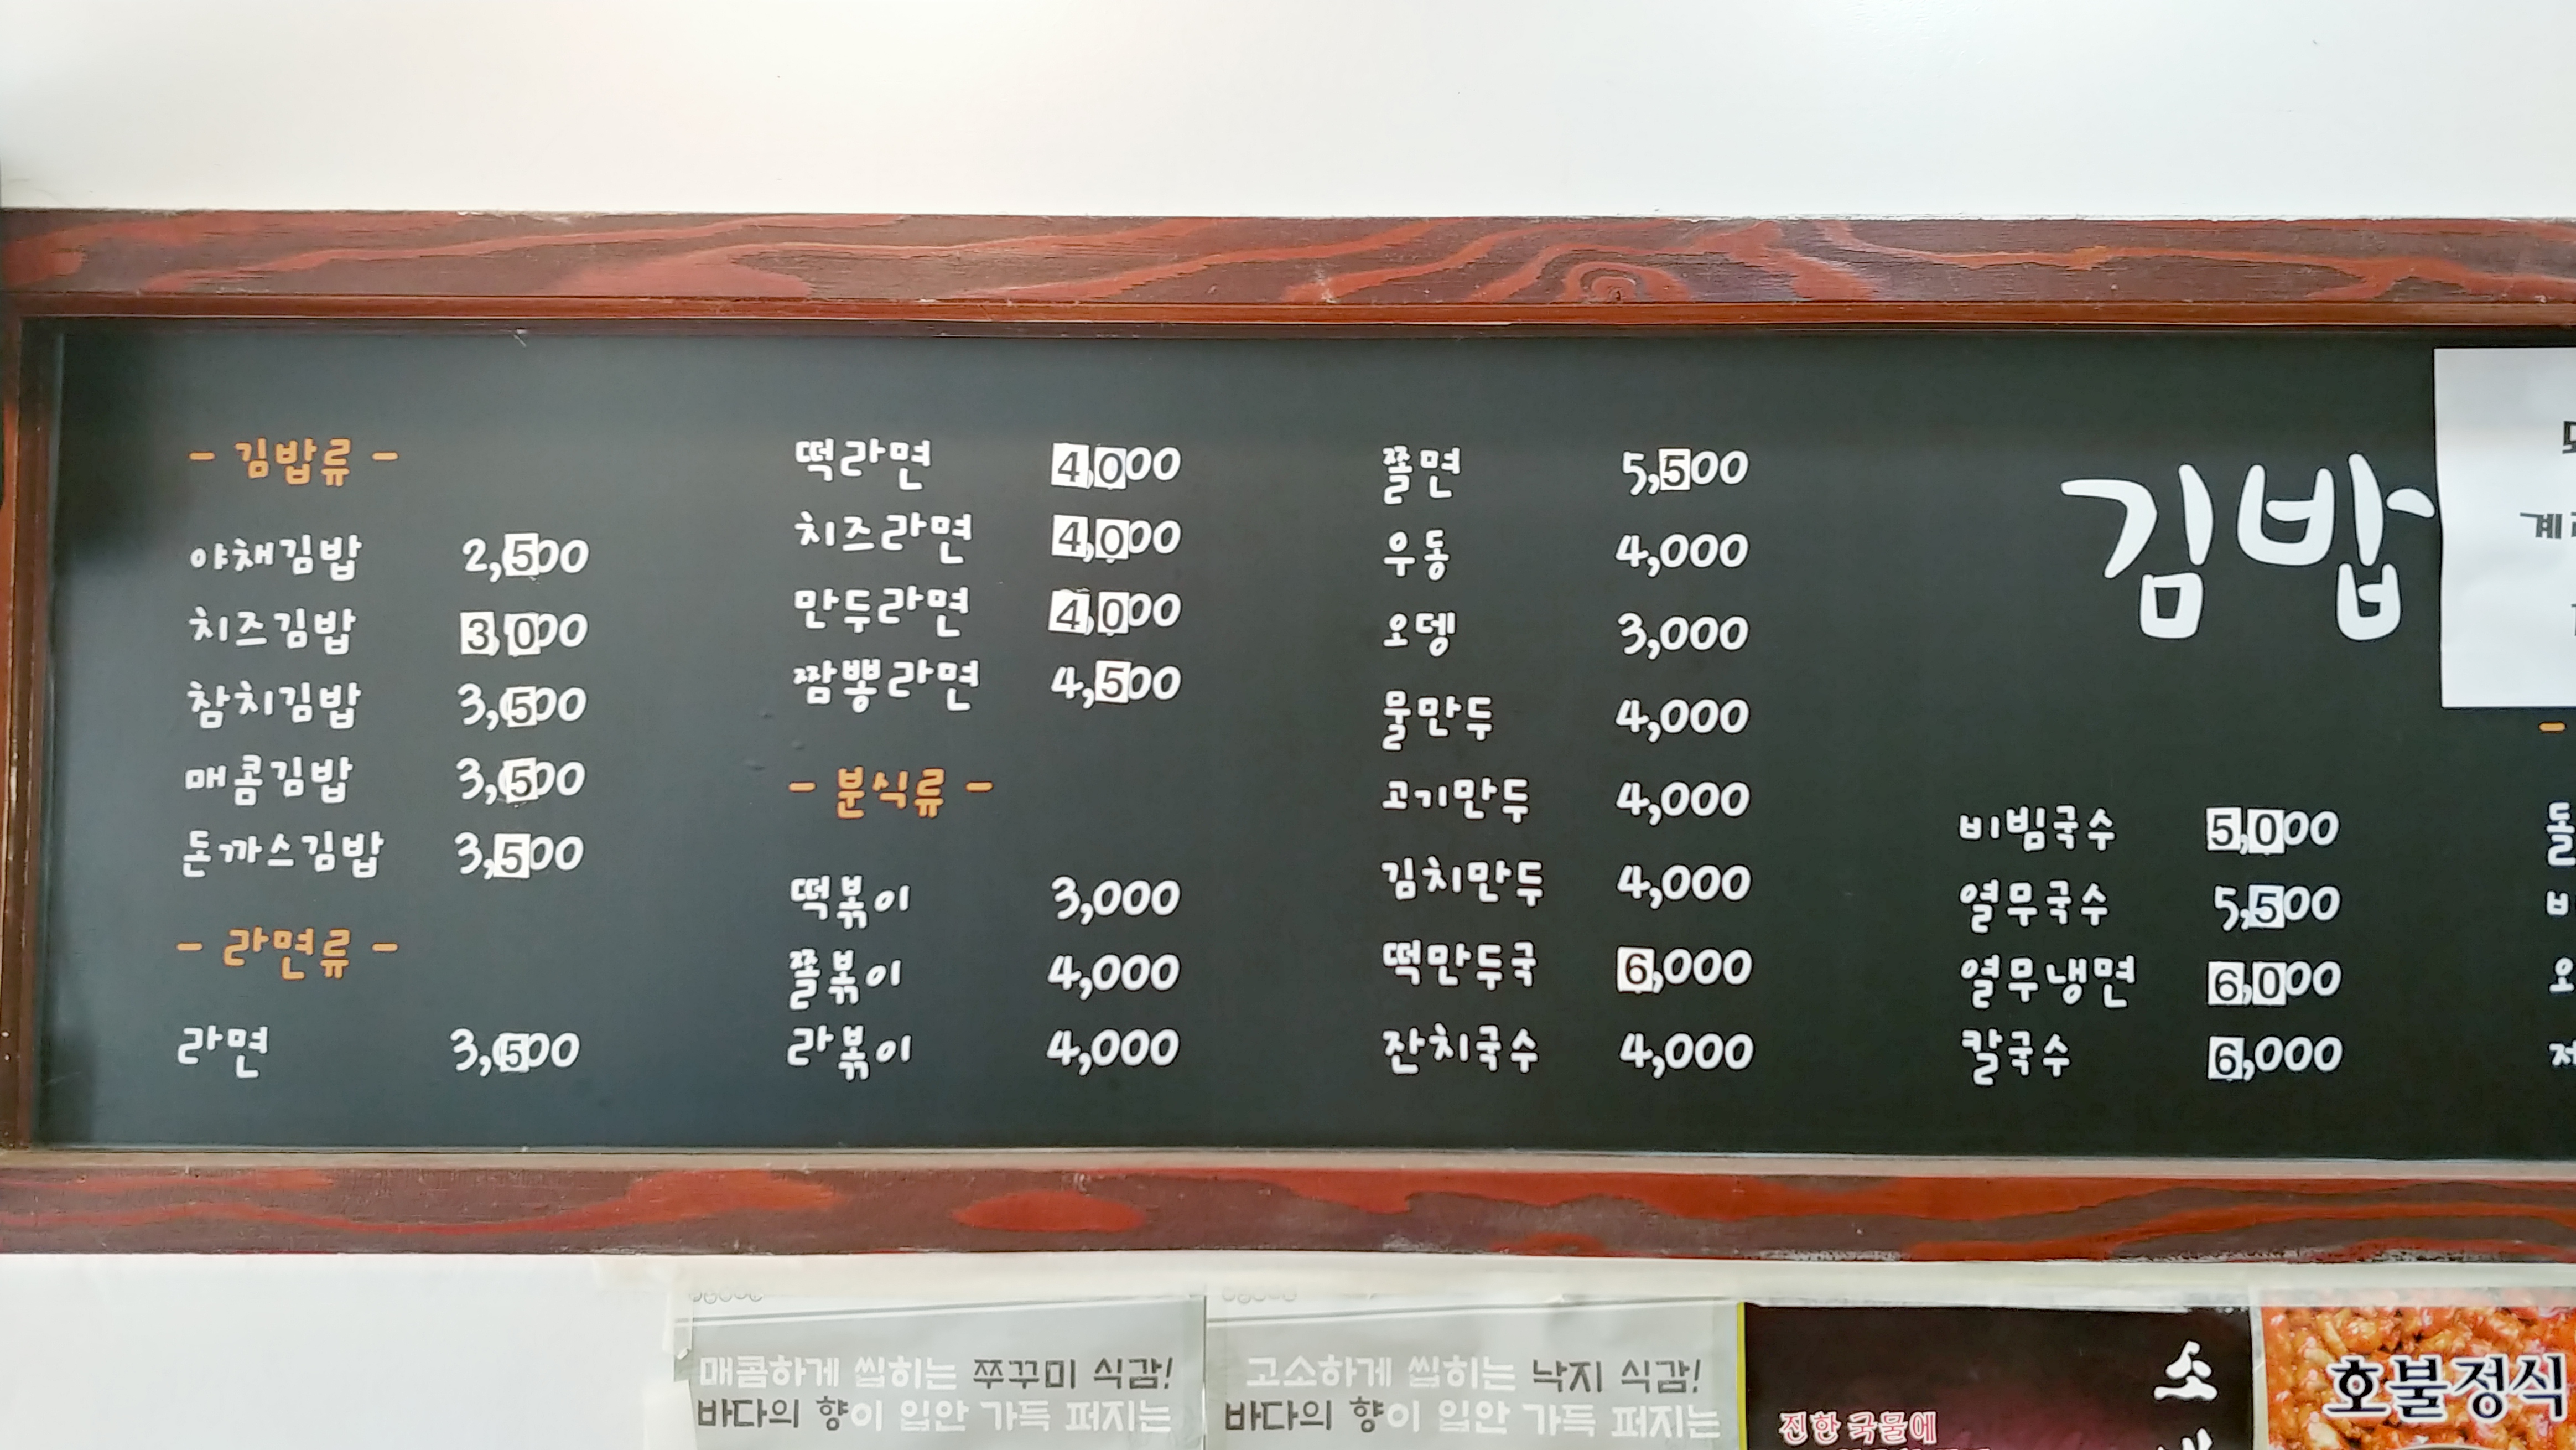 - 김밥류 -
야채김밥 2,500
치즈김밥 3,000
참치김밥 3,500
매콤김밥 3,500
돈까스김밥 3,500
- 라면류 -
라면 3,500
떡라면 4,000
치즈라면 4,000
만두라면 4,000
짬뽕라면 4,500
- 분식류 -
떡볶이 3,000
쫄볶이 4,000
라볶이 4,000
쫄면 5,500
우동 4,000
오뎅 3,000
물만두 4,000
고기만두 4,000
김치만두 4,000
떡만두국 6,000
잔치국수 4,000
김밥
비빔국수 5,000
열무국수 5,500
열무냉면 6,000
칼국수 6,000
매콤하게 씹히는 쭈꾸미 식감!
바다의 향이 입안 가득 퍼지는
고소하게 씹히는 낙지 식감!
바다의 향이 입안 가득 퍼지는
진한 국물에
소
호불정식